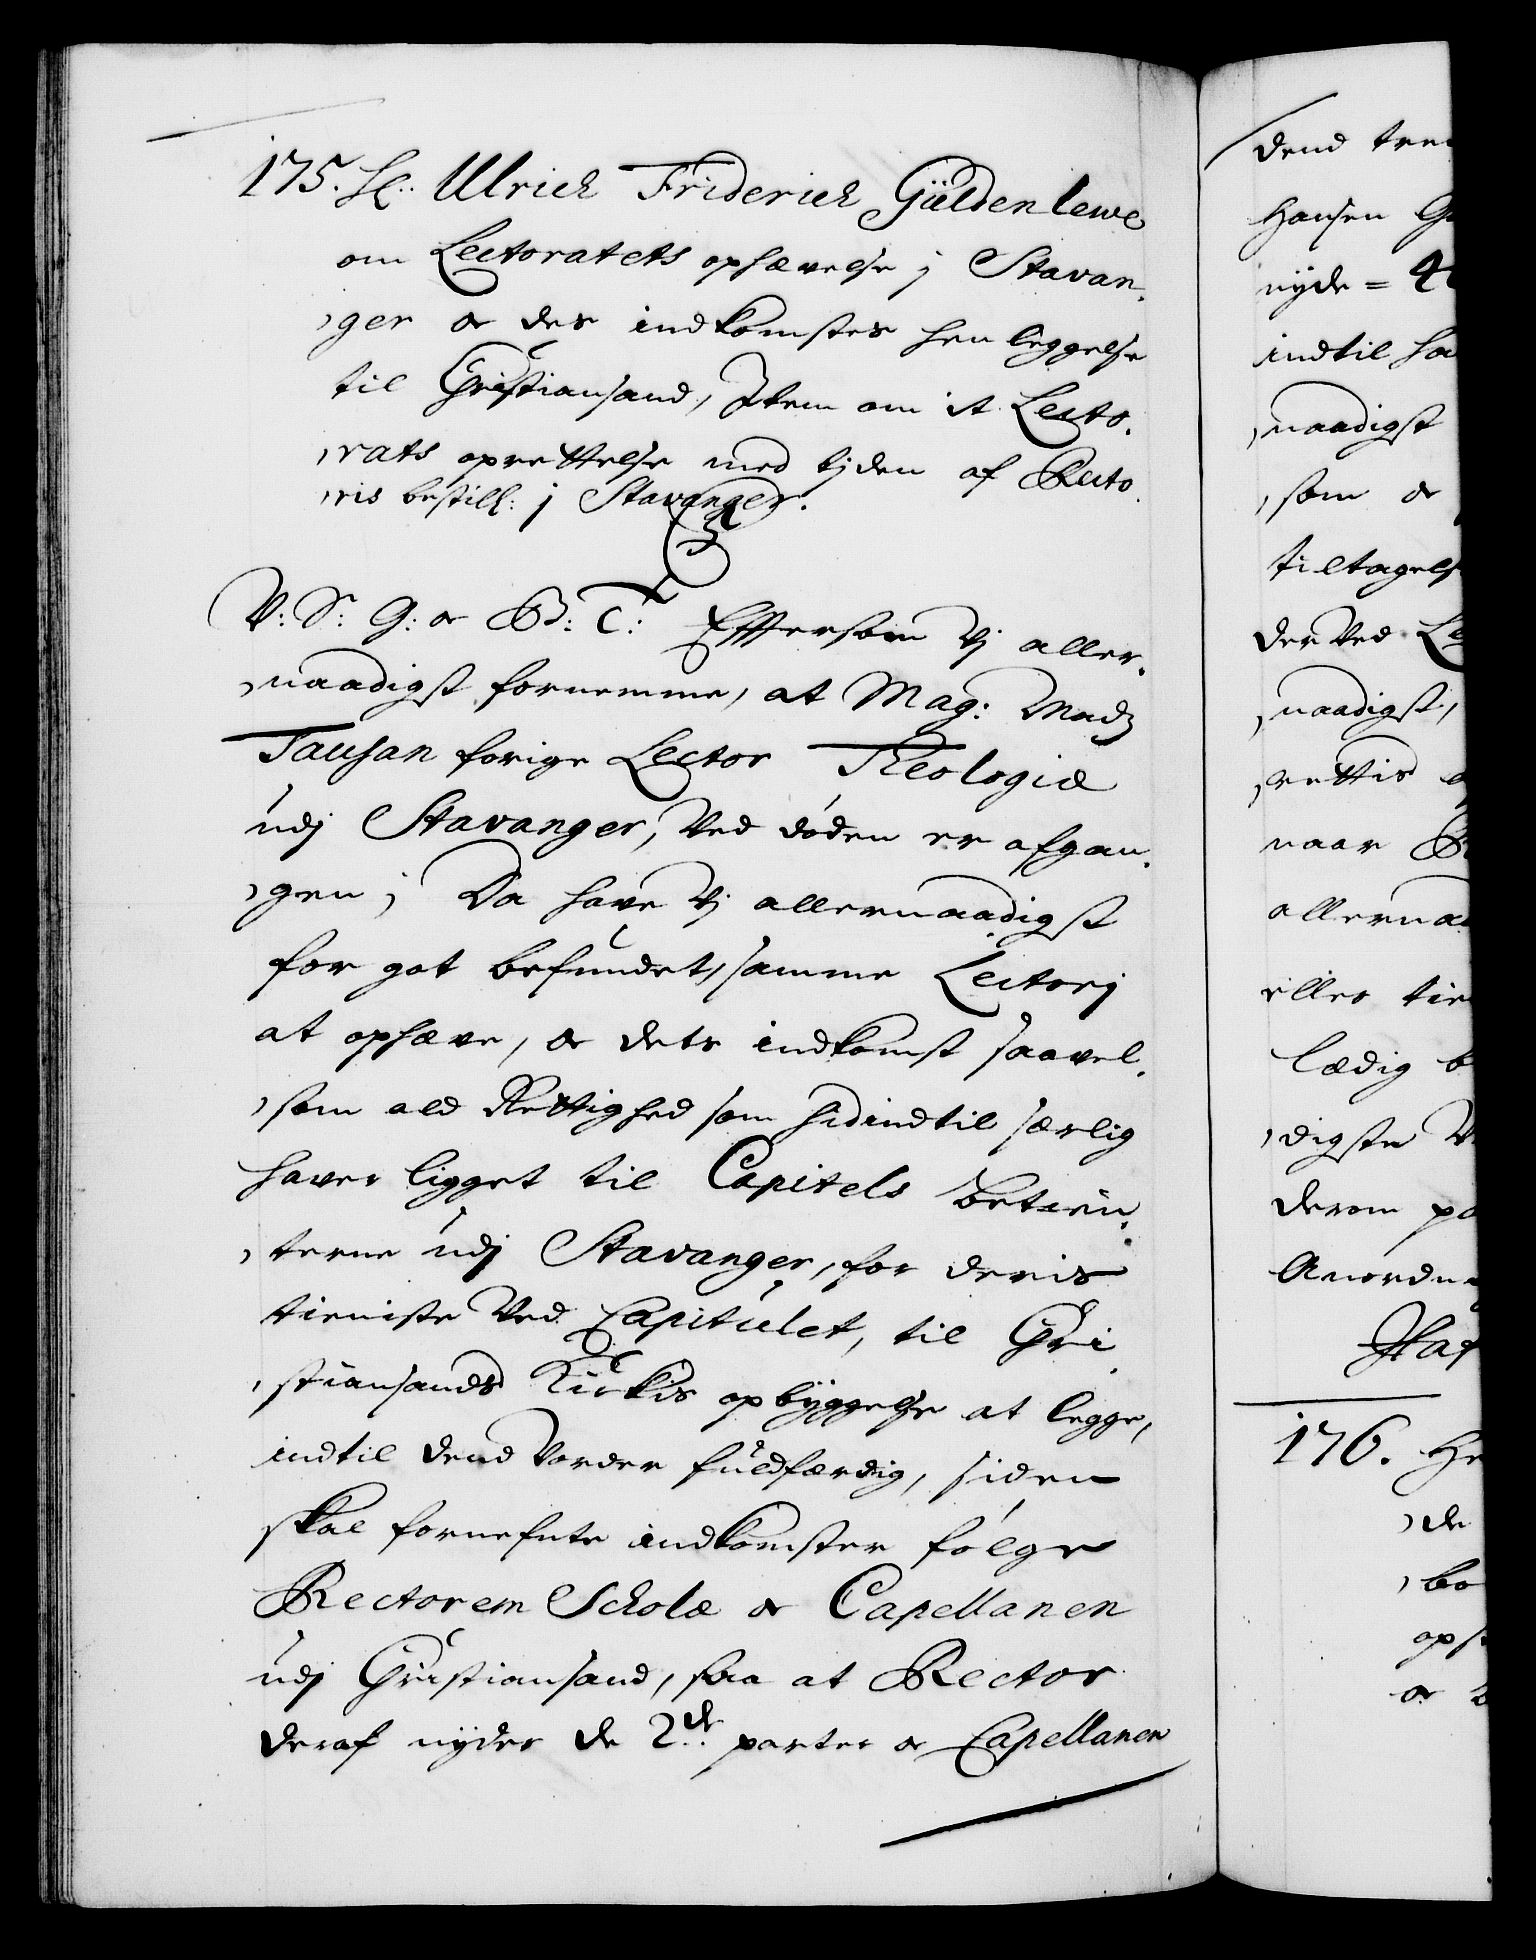 175. H: Ulrich Friderich Gÿldenlewe
om Lectoratets ophævelse j Stavan-
ger og des indkomstes hen leggelse
til Christiansand, Item om it Lecto-
rats oprettelse med tiden af Recto-
ris bestill: j Stavanger.
V: S: G: og B: T: Effterson Vj aller-
naadigst fornemme, at Mag: Madz
Tausan forige Lector Theologiæ
udj Stavanger, Ved døden er afgan-
gen; Da have Vj allernaadigst
for got befundet, samme Lectorj
at ophæve, og dets indkomst saavel-
som ald Rettighed som hidindtil særlig
haver ligget til Capitels betien-
terne udj Stavanger, for deris
tieniste Ved Capitulet, til Chri-
stiansands Kirkis opbÿggelse at legge,
indtil dend Vorder fuldfærdig, siden
skal fornefnte indkomster følge
Rectorem Scholæ og Capellanen
udj Christiansand, saa at Rector
deraf nyder de 2de parter og Capellanen
dend
Hansen
nyde =
indtil
naadigst
som og
der Ved
naadigst,
rettis
naar
eller
lædig
digste
derom
176.
de
og